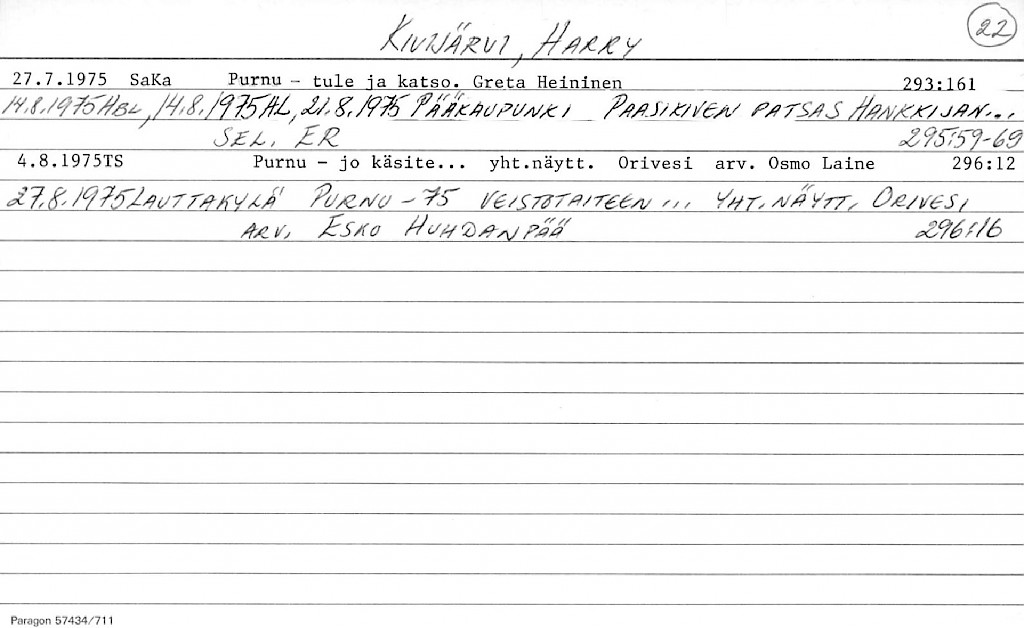 22
KIVIJÄRVI, HARRY
27.7.1975 SaKa Purnu - tule ja katso. Greta Heininen 293:161
14.8.1975 HBL, 14.8.1975 AL, 21.8.1975 PÄÄKAUPUNKI PAASIKIVEN PATSAS HANKKIJAN...
SEL. ER 295:59-69
4.8.1975TS Purnu - jo käsite... yht.näytt. Orivesi arv. Osmo Laine 296:12
27.8.1975 LAUTTAKYLÄ PURNU -75 VEISTOTAITEEN... YHT.NÄYTT. ORIVESI
ARV. ESKO HUHDANPÄÄ 296:16
Paragon 57434/711